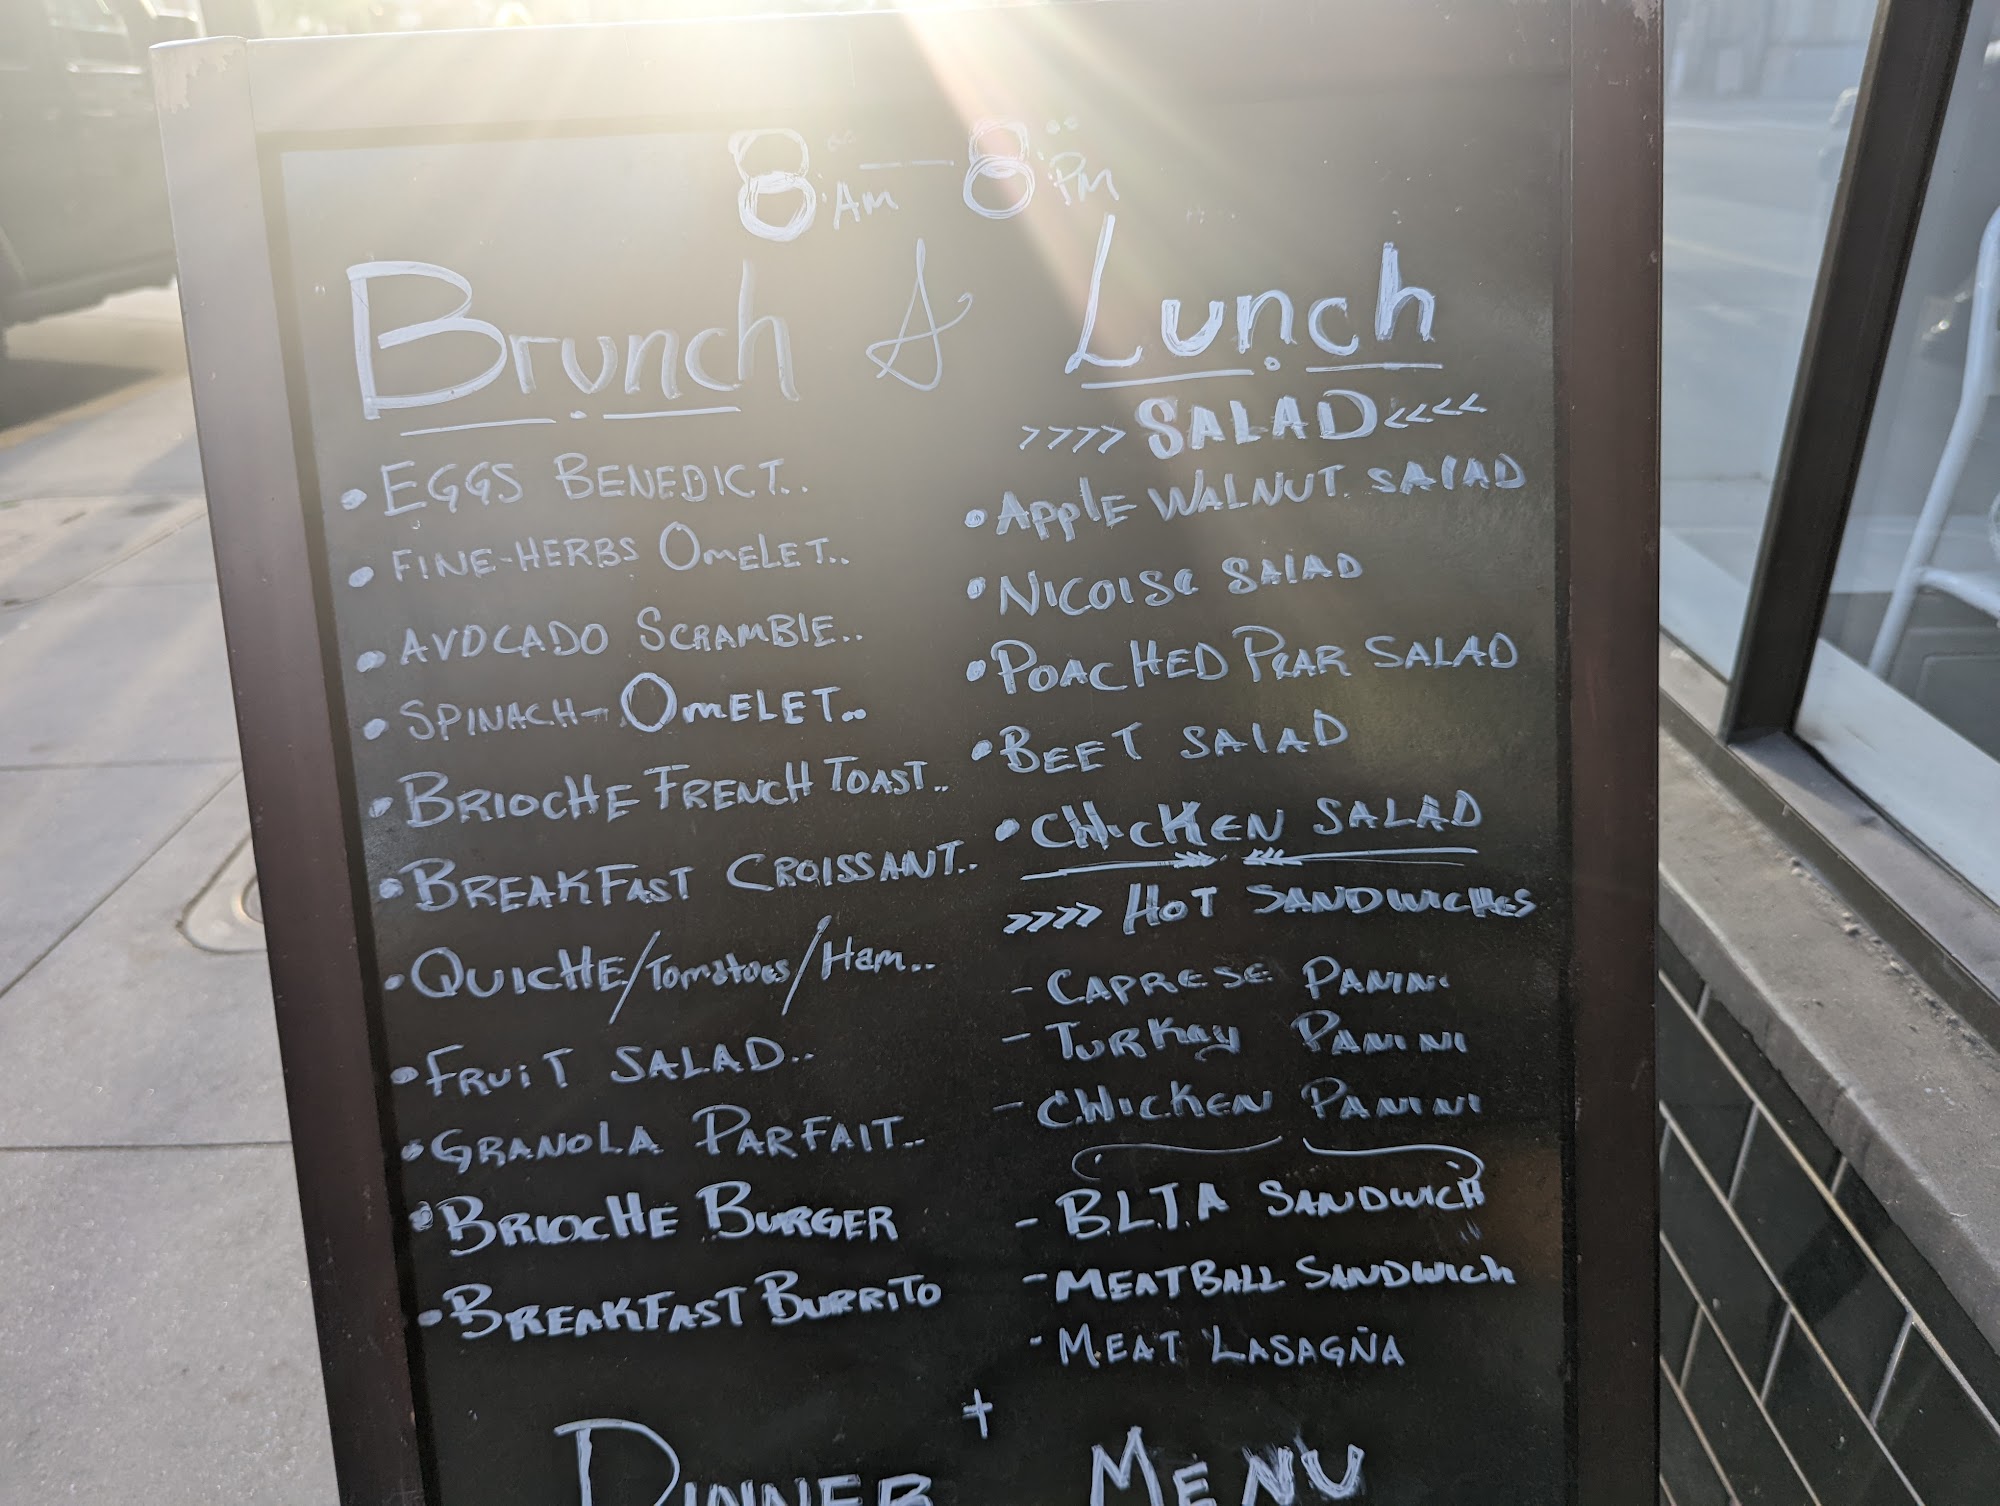 8:00 AM — 8:00 PM
Brunch & Lunch
• EGGS BENEDICT..
• FINE-HERBS OMELET..
• AVDCADO SCRAMBLE..
• SPINACH- OMELET..
• BRIOCHE FRENCH TOAST..
• BREAKFAST CROISSANT..
• QUICHE/Tomatoes/Ham..
• FRUIT SALAD..
• GRANOLA PARFAIT..
• BRIOCHE BURGER
• BREAKFAST BURRITO
>>>> SALAD <<<<
• APPLE WALNUT SALAD
• NICOISE SALAD
• POACHED PEAR SALAD
• BEET SALAD
• CHICKEN SALAD
>>>> HOT SANDWICHES
- CAPRESE PANINI
- TURKEY PANINI
- CHICKEN PANINI
- B.L.T.A SANDWICH
- MEATBALL SANDWICH
- MEAT LASAGÑA
+
DINNER MENU